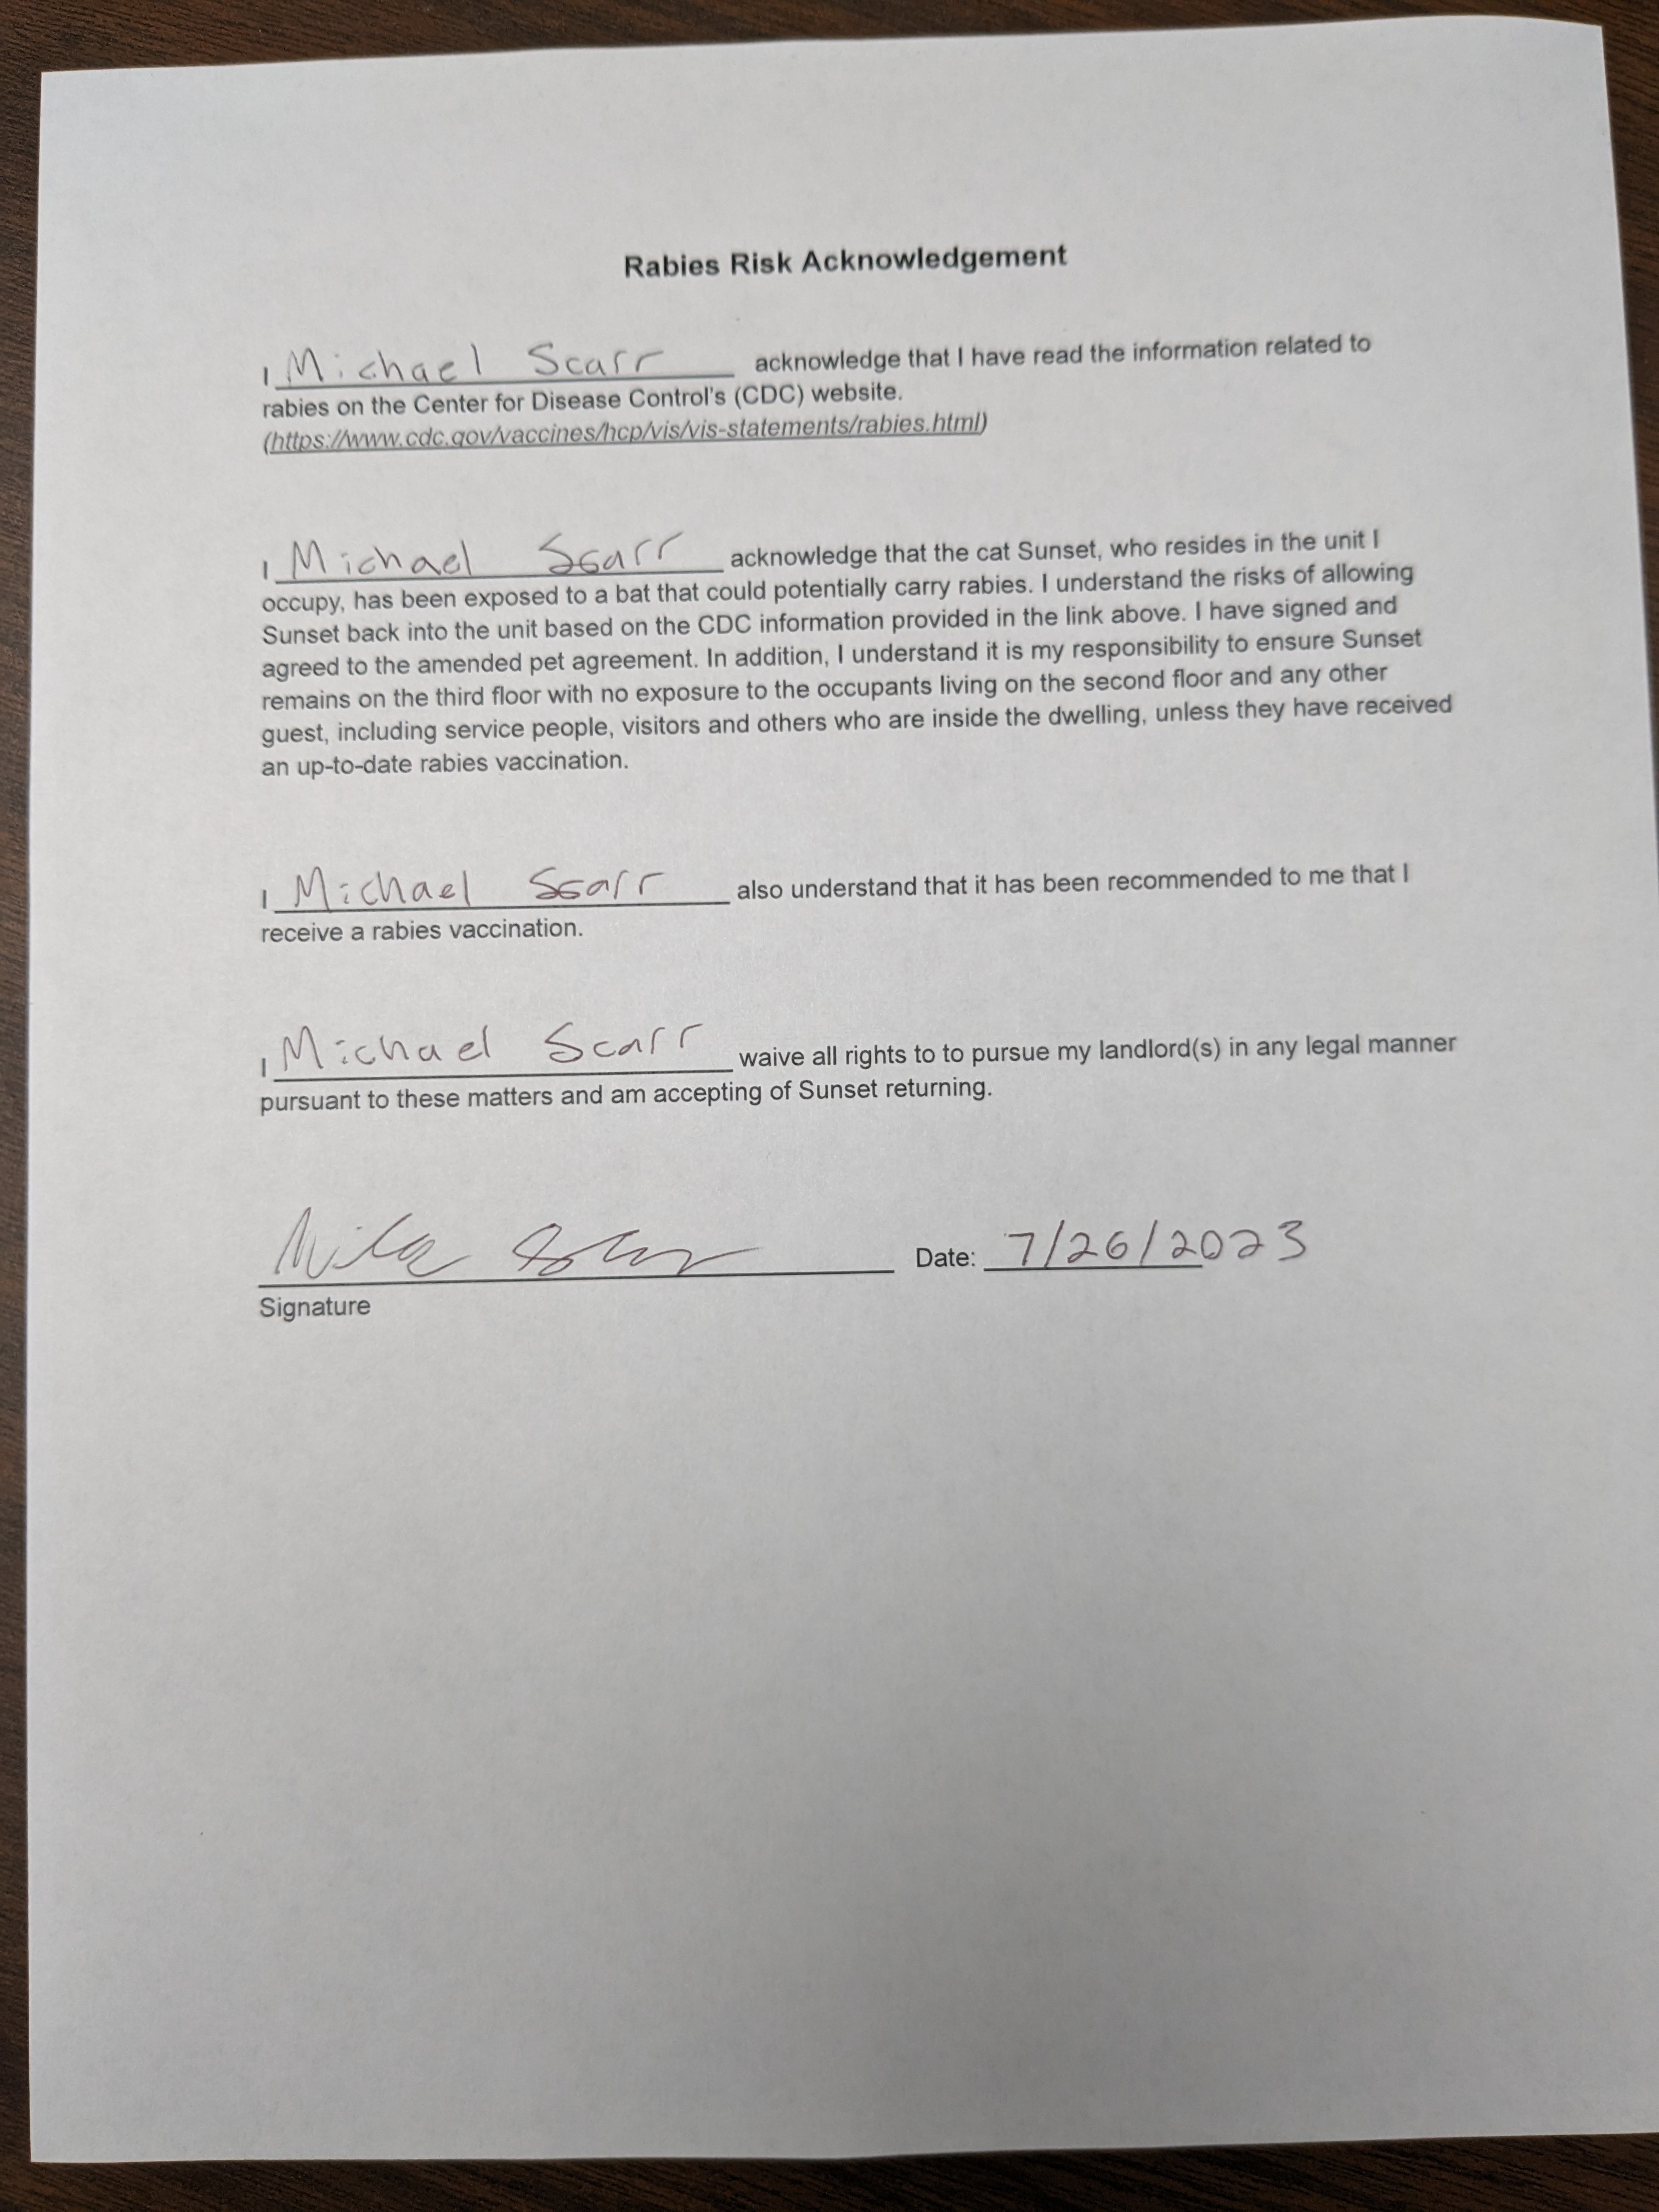 Rabies Risk Acknowledgement
I Michael Scarr acknowledge that I have read the information related to
rabies on the Center for Disease Control's (CDC) website.
(https://www.cdc.gov/vaccines/hcp/vis/vis-statements/rabies.html)
I Michael Scarr acknowledge that the cat Sunset, who resides in the unit I
occupy, has been exposed to a bat that could potentially carry rabies. I understand the risks of allowing
Sunset back into the unit based on the CDC information provided in the link above. I have signed and
agreed to the amended pet agreement. In addition, I understand it is my responsibility to ensure Sunset
remains on the third floor with no exposure to the occupants living on the second floor and any other
guest, including service people, visitors and others who are inside the dwelling, unless they have received
an up-to-date rabies vaccination.
I Michael Scarr also understand that it has been recommended to me that I
receive a rabies vaccination.
I Michael Scarr waive all rights to to pursue my landlord(s) in any legal manner
pursuant to these matters and am accepting of Sunset returning.
Date: 7/26/2023
Signature